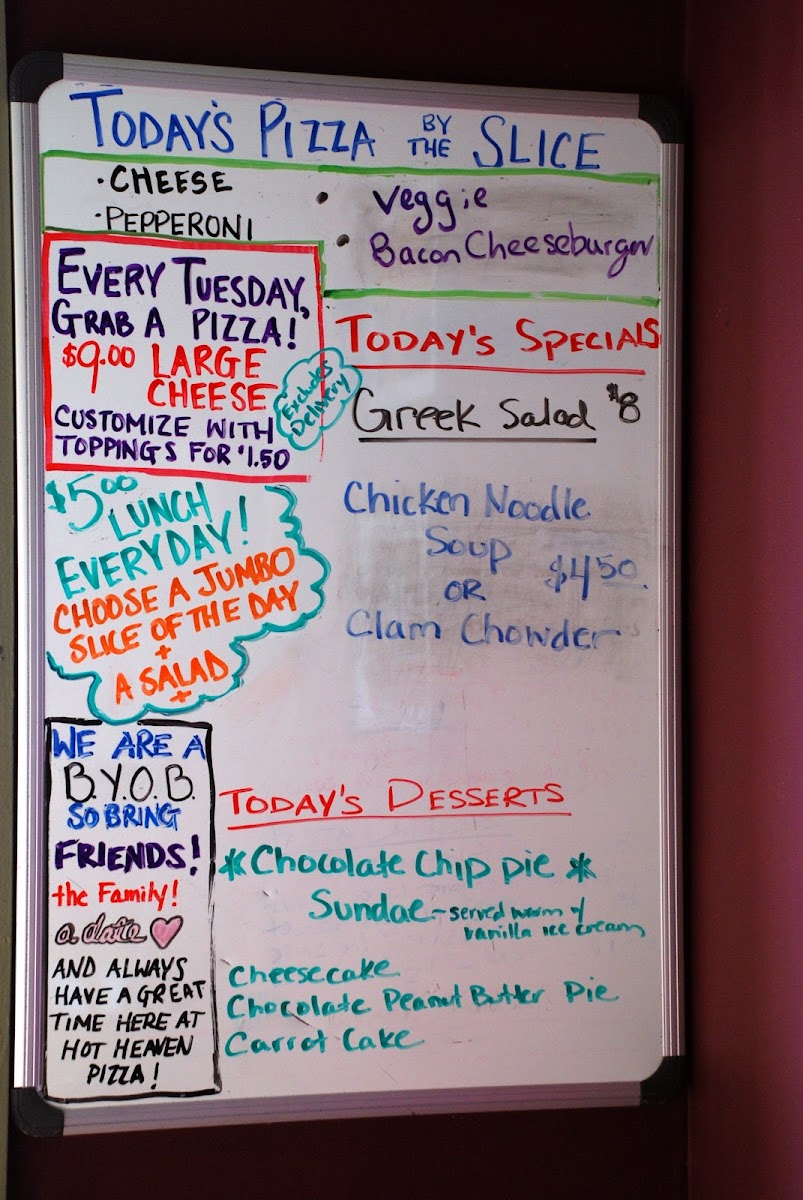 TODAY'S PIZZA BY THE SLICE
• CHEESE
• PEPPERONI
• Veggie
• Bacon Cheeseburger
EVERY TUESDAY,
GRAB A PIZZA!
$9.00 LARGE
CHEESE
CUSTOMIZE WITH
TOPPINGS FOR $1.50
Excludes
Delivery
TODAY'S SPECIALS
Greek Salad $8
Chicken Noodle
Soup
OR $4.50
Clam Chowder
$5.00
LUNCH
EVERYDAY!
CHOOSE A JUMBO
SLICE OF THE DAY
+
A SALAD
+
WE ARE A
B.Y.O.B.
SO BRING
FRIENDS!
the Family!
a date
AND ALWAYS
HAVE A GREAT
TIME HERE AT
HOT HEAVEN
PIZZA!
TODAY'S DESSERTS
* Chocolate Chip pie *
Sundae - served warm w/
vanilla ice cream
Cheesecake
Chocolate Peanut Butter Pie
Carrot Cake